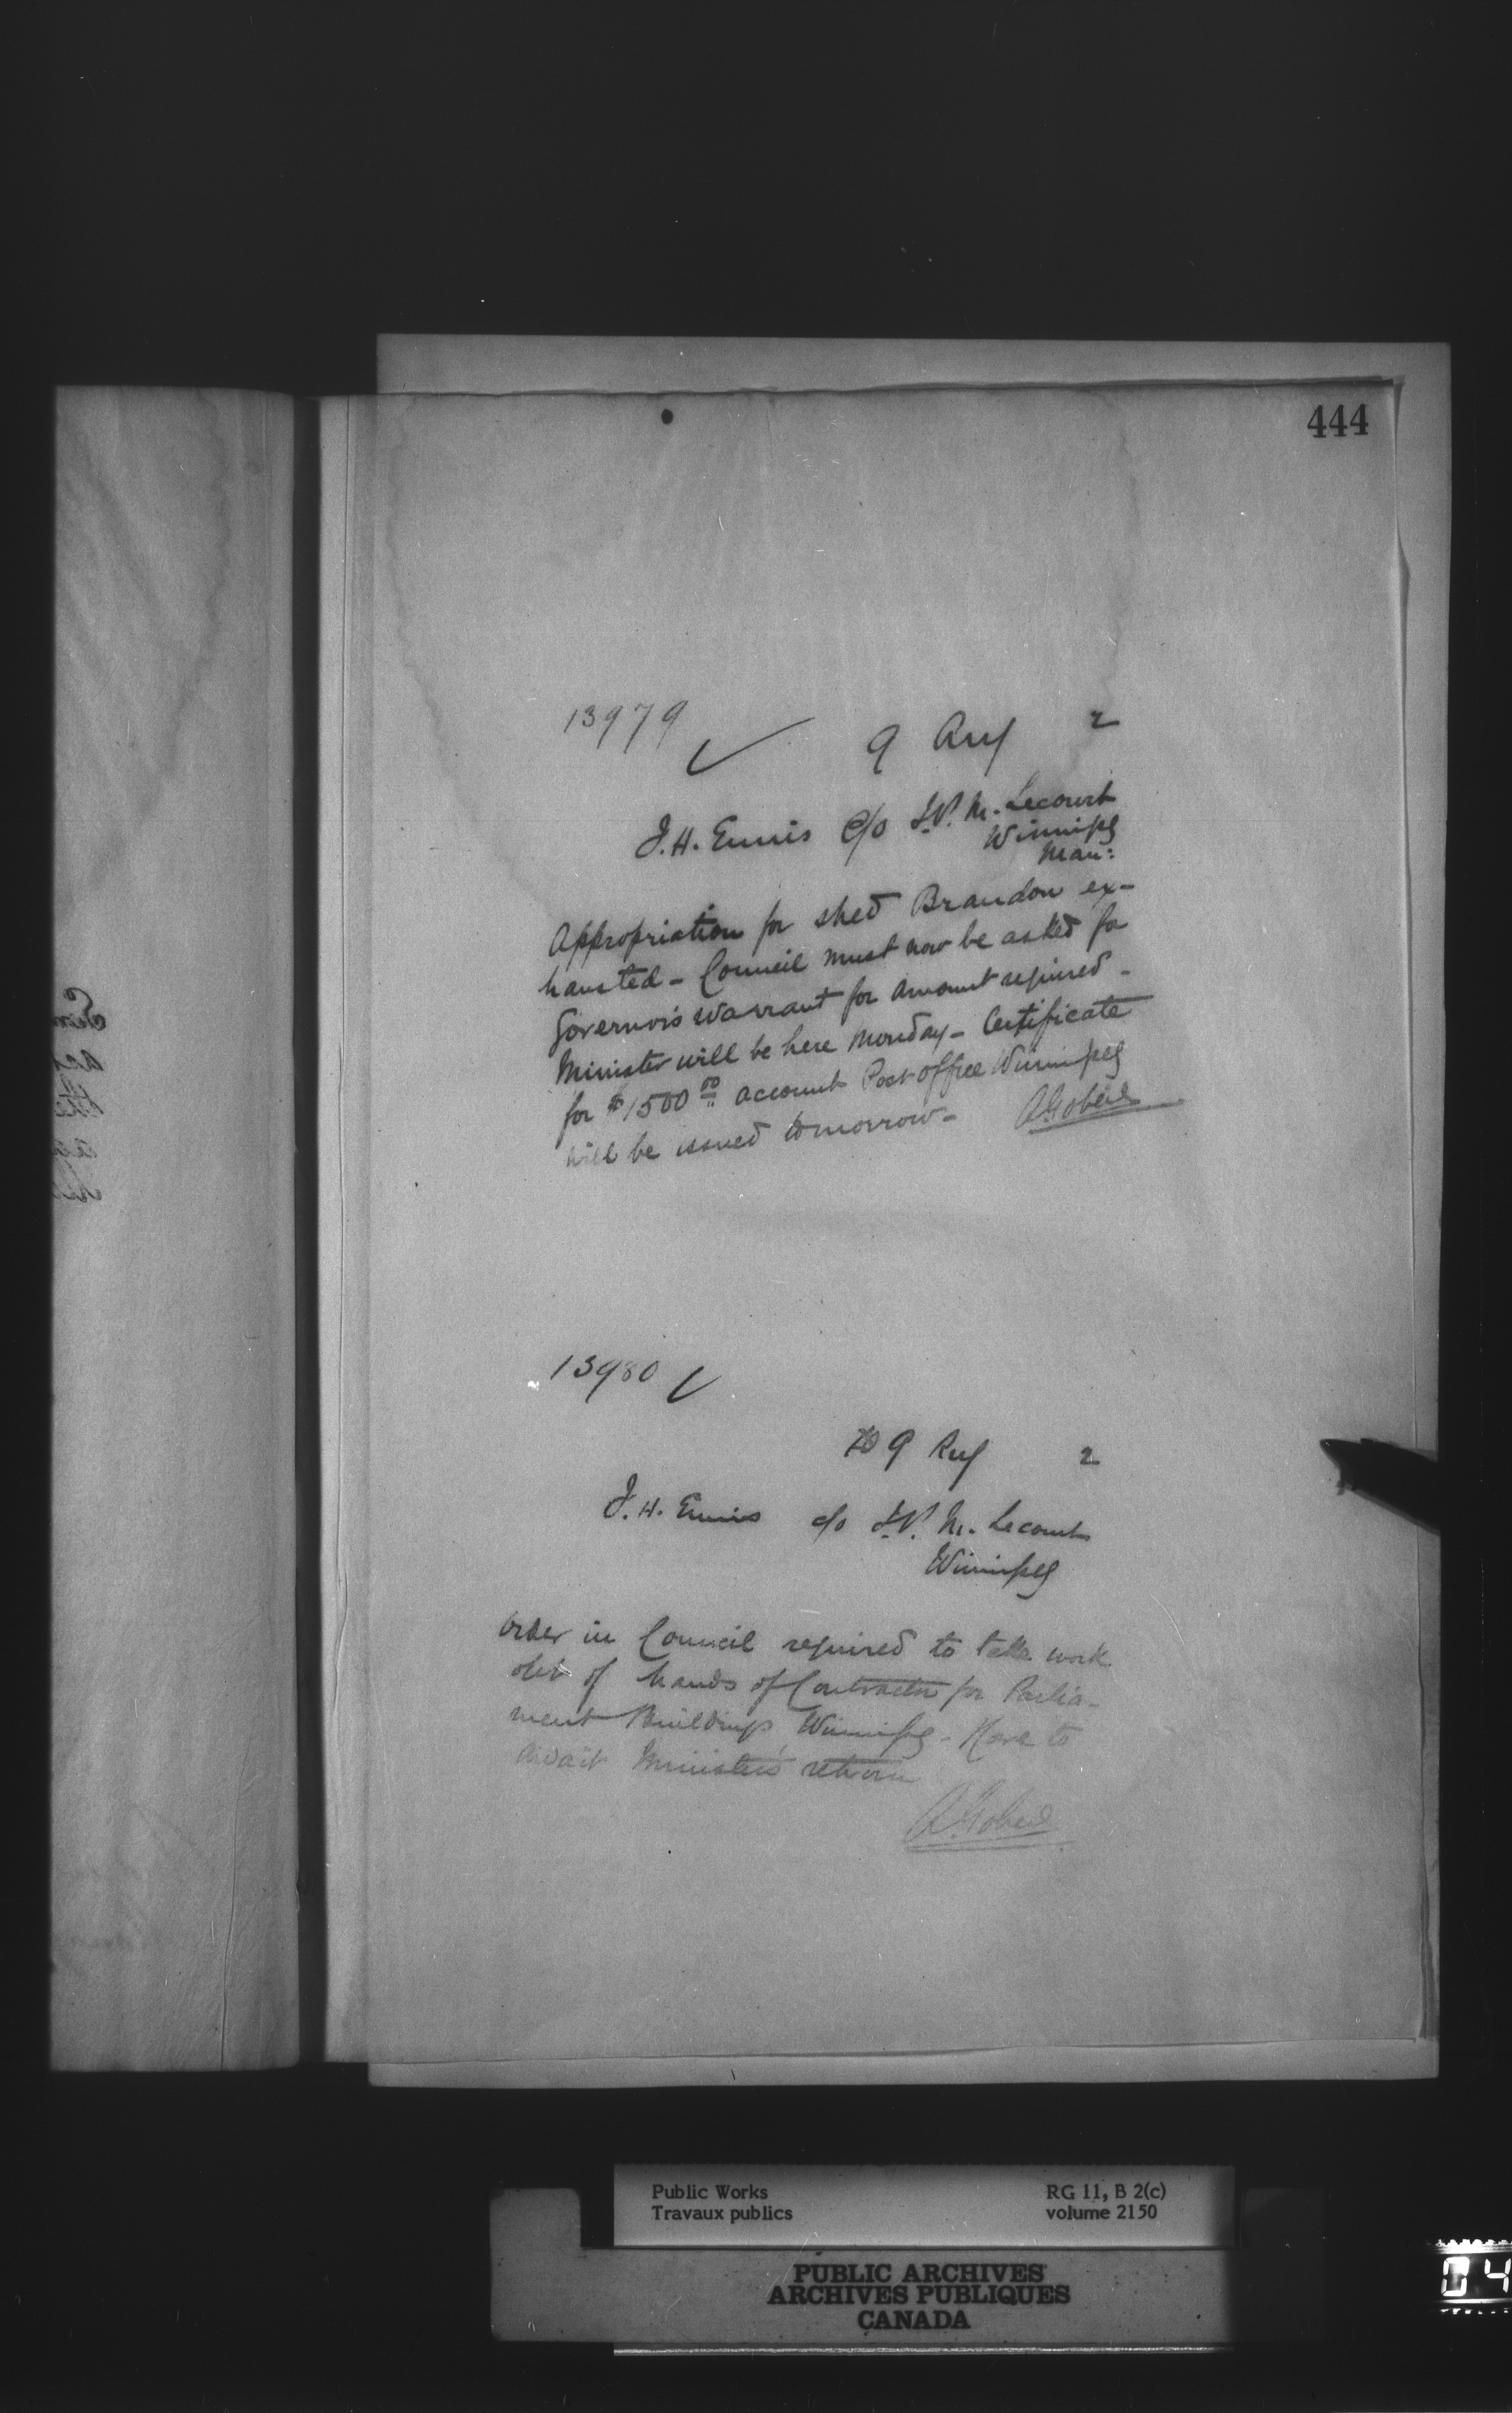 444
13979 ✓ 9 Aug 2
J. H. Ennis c/o J.P.M. Lecourt
Winnipeg
Man:
Appropriation for shed Brandon ex-
hausted - Council must now be asked for
Governor's Warrant for amount required -
Minister will be here Monday - Certificate
for $1500 00 account Post office Winnipeg
will be issued tomorrow - A Gobeil
13980 ✓
9 Aug 2
J. H. Ennis c/o J.P.M. Lecourt
Winnipeg
Order in Council required to take work
out of hands of Contractor for Parlia-
ment Buildings Winnipeg - Have to
await Minister's return
A Gobeil
Public Works
Travaux publics
RG 11, B 2(c)
volume 2150
PUBLIC ARCHIVES
ARCHIVES PUBLIQUES
CANADA
04